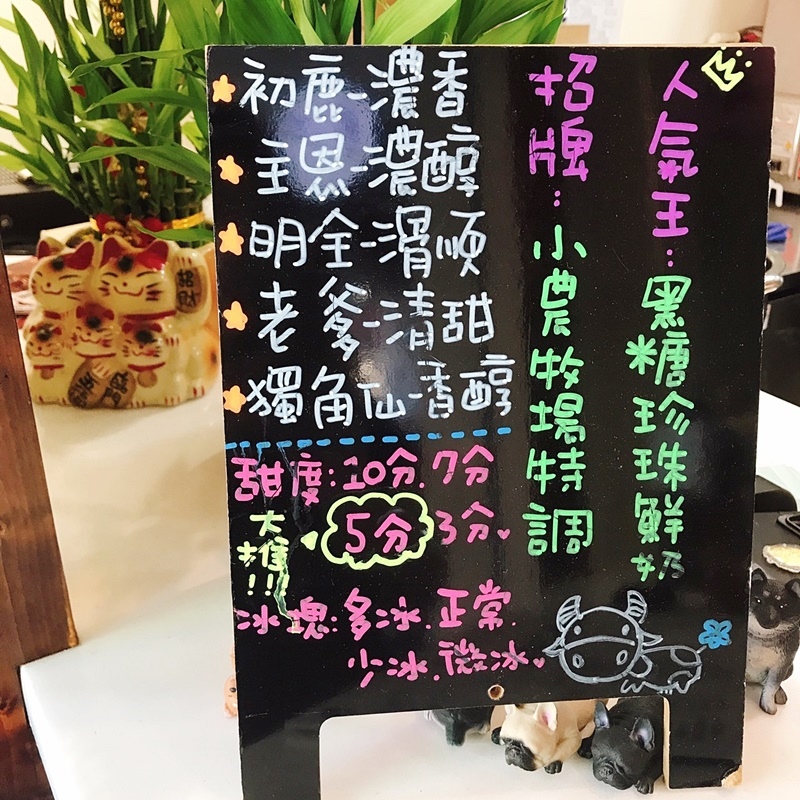 人氣王:黑糖珍珠鮮奶
招牌:小農牧場特調
初鹿-濃香
主恩-濃醇
明全-滑順
老爹-清甜
獨角仙-香醇
甜度:10分.7分
5分 3分
大推!!!
冰塊:多冰.正常.
少冰.微冰